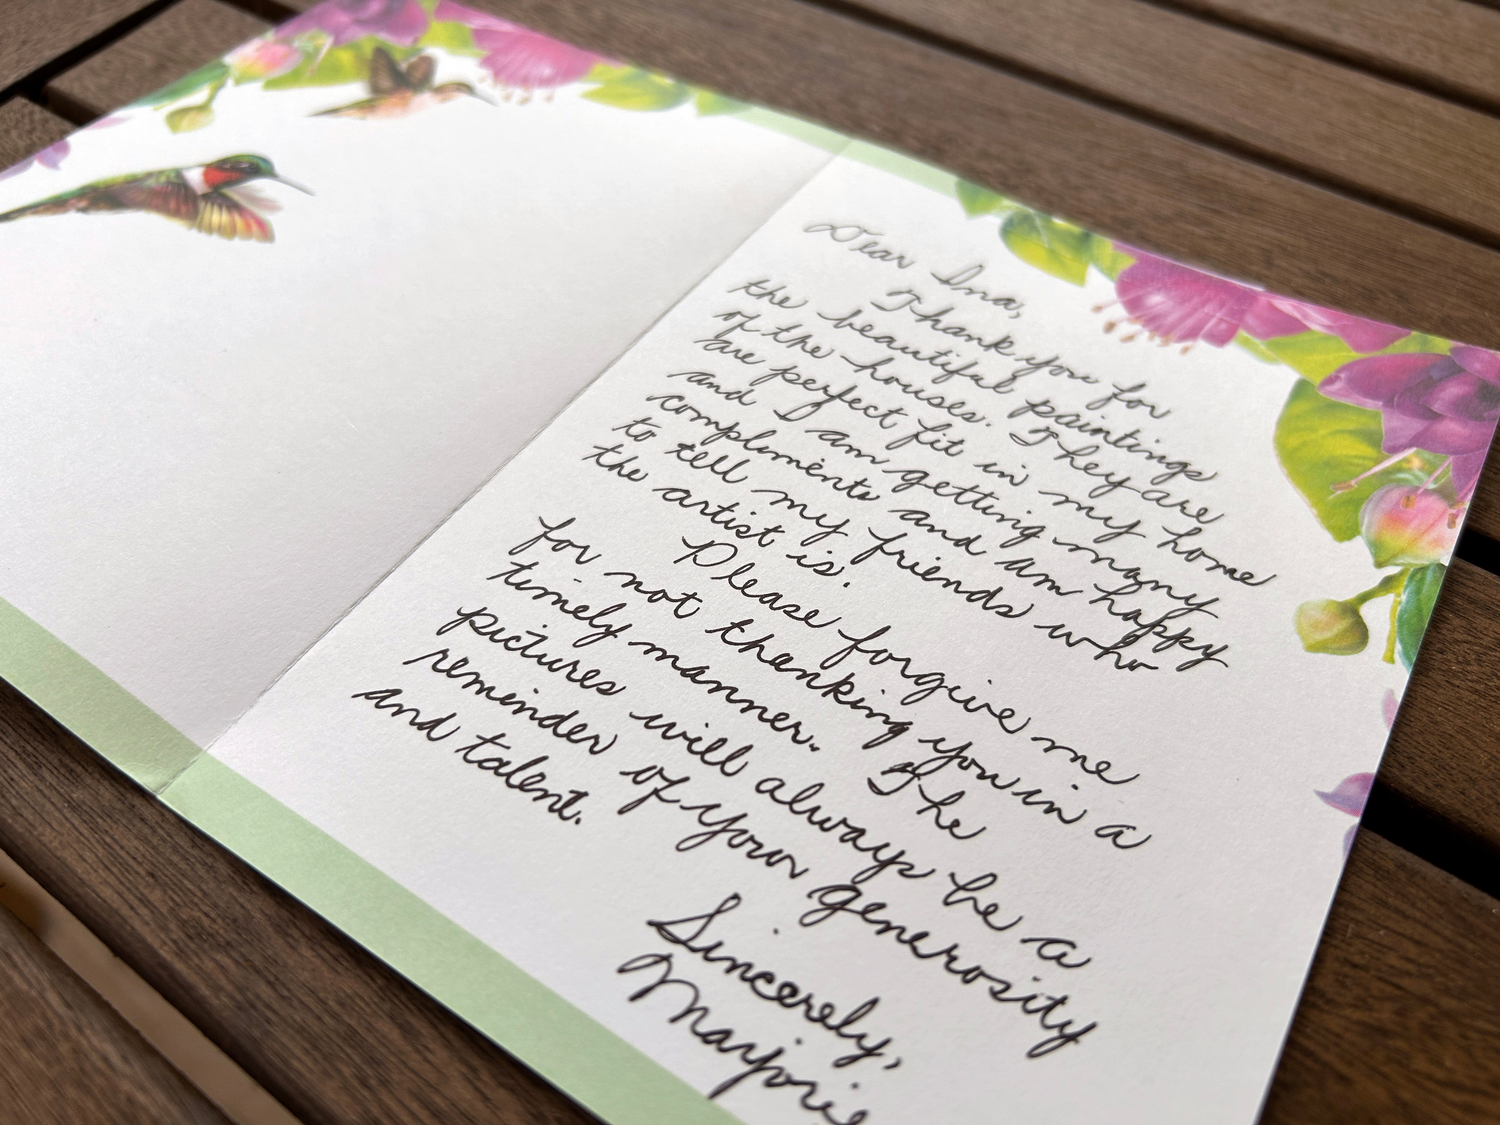 Dear Ina,
Thank you for
the beautiful paintings
of the houses. They are
are perfect fit in my home
and I am getting many
compliments and am happy
to tell my friends who
the artist is.
Please forgive me
for not thanking you in a
timely manner. The
pictures will always be a
reminder of your generosity
and talent.
Sincerely,
Marjorie